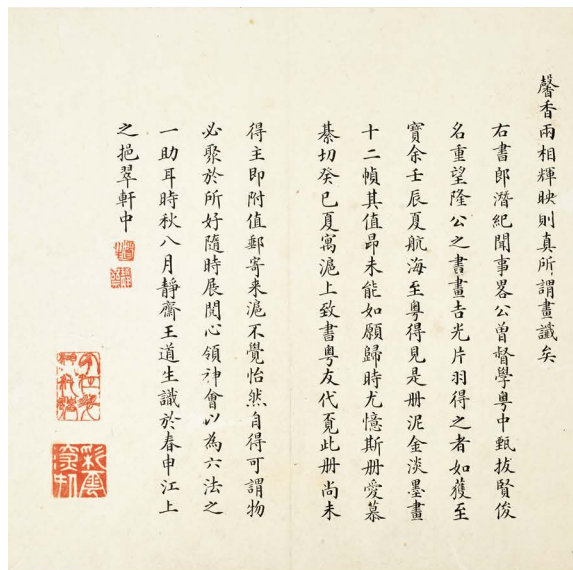 馨香兩相輝映則真所謂畫讖矣
右書郎潛紀聞事畧公曾督學粵中甄拔賢俊
名重望隆公之書畫吉光片羽得之者如獲至
寶余壬辰夏航海至粵得見是册泥金淡墨畫
十二幀其值昂未能如願歸時尤憶斯册愛慕
綦切癸巳夏寓滬上致書粵友代覔此册尚未
得主即附值郵寄来滬不覺怡然自得可謂物
必聚於所好隨時展閱心領神會以為六法之
一助耳時秋八月靜齋王道生識於春申江上
之挹翠軒中